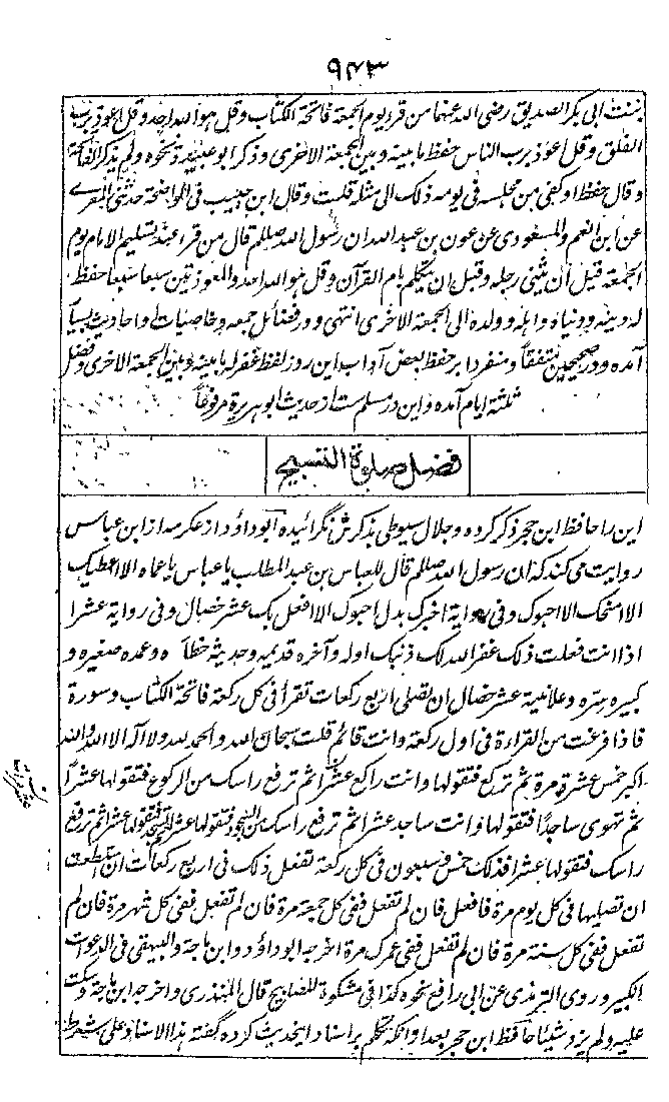 ۹۴۳
بنت ابی بکر الصدیق رضی الله عنهما من قرء یوم الجمعة فاتحة الکتاب وقل هو الله احد وقل اعوذ برب
الفلق وقل اعوذ برب الناس حفظ ما بینه وبین الجمعة الاخری وذکر ابو عبید نحوه ولم یذکر الفاتحة
وقال حفظ او کفی من مجلسه فی یومه ذلک الی مثله قلت وقال ابن حبیب فی الواضحة حدثنی المقری
عن ابن انعم والمسعودی عن عون بن عبد الله ان رسول الله صلعم قال من قرا عند تسلیم الامام یوم
الجمعة قبل ان یثنی رجله وقبل ان یتکلم بام القرآن وقل هو الله احد والمعوذتین سبعا سبعا حفظ
له دینه ودنیاه واهله وولده الی الجمعة الاخری انتهی ودر فضائل جمعه وخاصیات او احادیث بسیار
آمده ودر صحیحین متفقاً ومنفردا بر حفظ بعض آداب این روز لفظ غفر له ما بینه وبین الجمعة الاخری وفضل
ثلثة ایام آمده واین در مسلم ست از حدیث ابو هریرة مرفوعاً
فضل صلوة التسبیح
این را حافظ ابن حجر ذکر کرده وجلال سیوطی بذکرش نگرائیده ابو داؤد از عکرمه از ابن عباس
روایت می کند که ان رسول الله صلعم قال للعباس بن عبد المطلب یا عباس یا عماه الا اعطیک
الا امنحک الا احبوک وفی روایة اخبرک بدل احبوک الا افعل بک عشر خصال وفی روایة عشرا
اذا انت فعلت ذلک غفر الله لک ذنبک اوله وآخره قدیمه وحدیثه خطأه وعمده صغیره و
کبیره سره وعلانیة عشر خصال ان تصلی اربع رکعات تقرأ فی کل رکعة فاتحة الکتاب وسورة
فاذا فرغت من القراءة فی اول رکعة وانت قائم قلت سبحان الله والحمد لله ولا اله الا الله والله
اکبر خمس عشرة مرة ثم ترکع فتقولها وانت راکع عشرا ثم ترفع راسک من الرکوع فتقولها عشراً
ثم تهوی ساجداً فتقولها وانت ساجد عشرا ثم ترفع راسک من السجود فتقولها عشرا ثم تسجد فتقولها عشرا ثم ترفع
راسک فتقولها عشرا فذلک خمس وسبعون فی کل رکعة تفعل ذلک فی اربع رکعات ان استطعت
ان تصلیها فی کل یوم مرة فافعل فان لم تفعل ففی کل جمعة مرة فان لم تفعل ففی کل شهر مرة فان لم
تفعل ففی کل سنة مرة فان لم تفعل ففی عمرک مرة اخرجه ابو داؤد وابن ماجة والبیهقی فی الدعوات
الکبیر وروی الترمذی عن ابی رافع نحوه کذا فی مشکوة المصابیح قال المنذری واخرجه ابن ماجة وسکت
علیه ولم یزد شیئا حافظ ابن حجر بعد از انکه تکلم بر اسناد این حدیث کرده گفته هذا الاسناد علی شرط